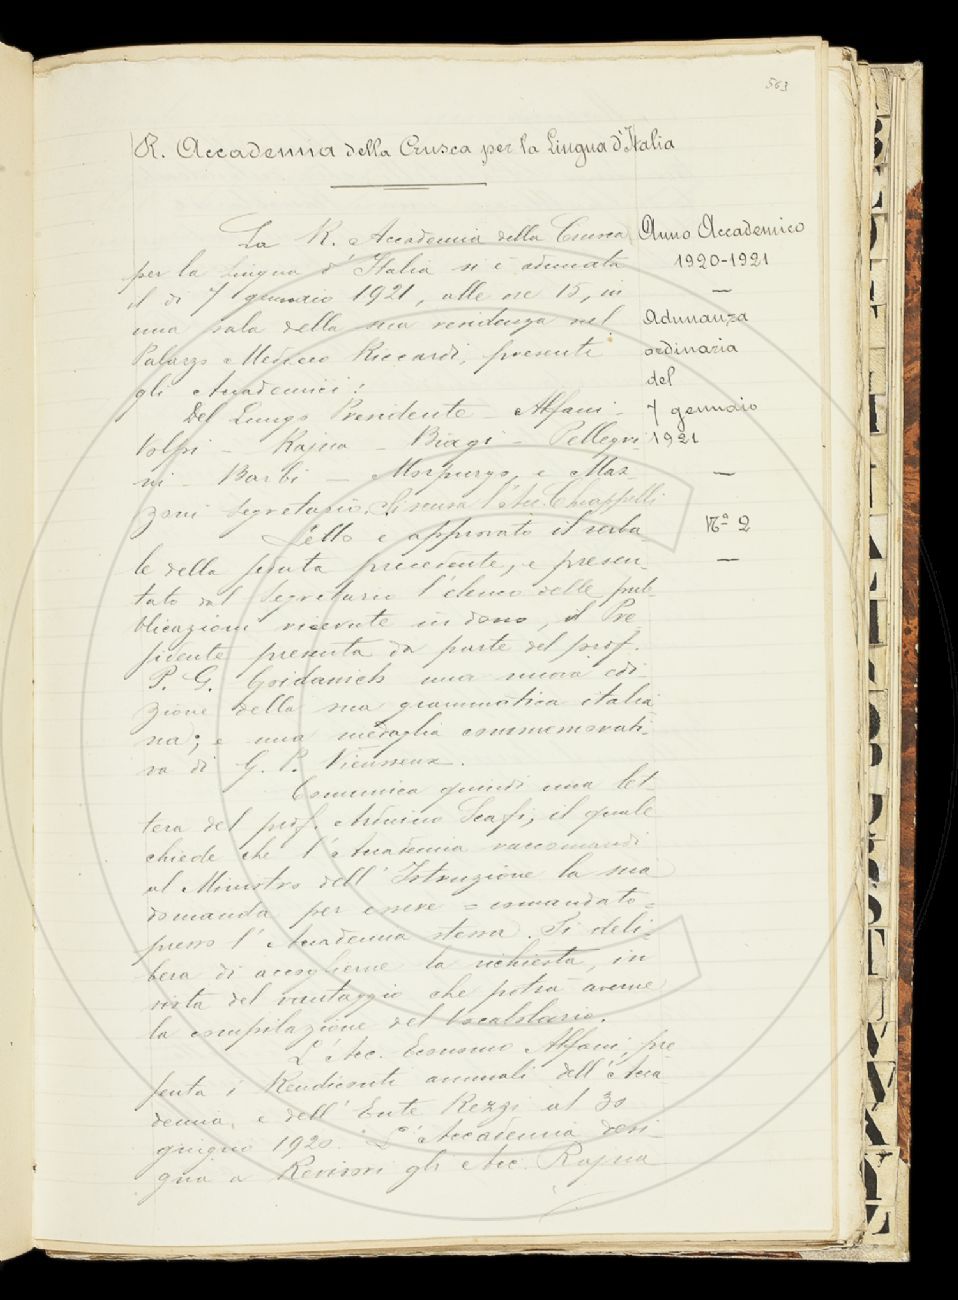 563
R. Accademia della Crusca per la Lingua d'Italia
La R. Accademia della Crusca
per la Lingua d'Italia si è adunata
il dì 7 gennaio 1921, alle ore 15, in
una sala della sua residenza nel
Palazzo Mediceo Riccardi, presenti
gli Accademici:
Del Lungo Presidente - Alfani -
Volpi - Rajna - Biagi - Pellegri
ni - Barbi - Morpurgo, e Maz
zoni Segretario. Si scusa l'Acc. Chiappelli
Letto e approvato il verba-
le della seduta precedente, e presen-
tato dal Segretario l'elenco delle pub-
blicazioni ricevute in dono, il Pre
sidente presenta da parte del prof.
P. G. Goidanich una nuova edi
zione della sua grammatica italia
na; e una medaglia commemorati-
va di G. P. Vieusseux.
Comunica quindi una let-
tera del prof. Arturo Scafi, il quale
chiede che l'Accademia raccomandi
al Ministro dell'Istruzione la sua
domanda per essere = comandato =
presso l'Accademia stessa. Si deli-
bera di accoglierne la richiesta, in
vista del vantaggio che potrà averne
la compilazione del Vocabolario.
L'Acc. Economo Alfani, pre
senta i Rendiconti annuali dell'Acca
demia, e dell'Ente Rezzi al 30
giugno 1920. L'Accademia desi-
gna a Revisori gli Acc. Rajna
Anno Accademico
1920-1921
Adunanza
ordinaria
del
7 gennaio
1921
N.º 2
A
B
C
D